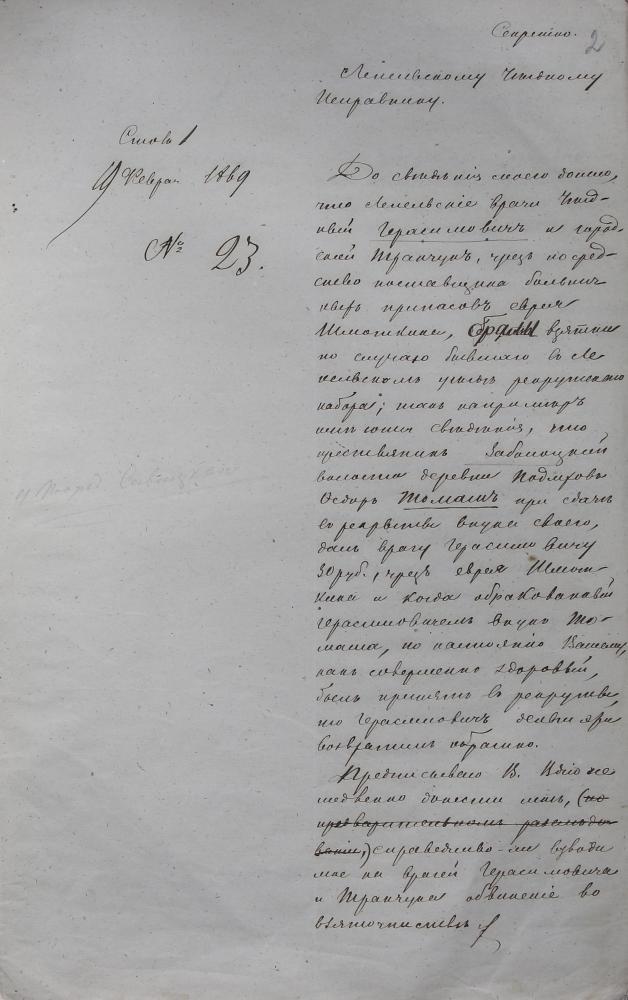 Секретно.
2
Лепельскому Уѣздному
Исправнику.
Столъ 1
19 Феврал 1869
№ 23.
До свѣдѣнія моего дошло,
что Лепельскіе врачи Уѣзд-
ный Герасимовичъ и город-
ской Транчукъ, чрезъ посред-
ство поставщика больнич
ныхъ припасовъ еврея
Шмоткина, брали взятки
по случаю бывшаго въ Ле
пельскомъ уѣздѣ рекрутскаго
набора; такъ напримѣръ
есть свѣдѣнія, что
крестьянинъ Заболоцкой
волости деревни
Ѳедоръ Томашъ при сдачѣ
въ рекруты внука своего,
далъ врачу Герасимовичу
30 руб., чрезъ еврея Шмот-
кина и когда обракованный
Герасимовичемъ внукъ То-
маша, по настоянію Вашему,
какъ совершенно здоровый,
былъ принятъ въ рекруты
то Герасимовичъ деньги
возвратилъ обратно.
Предписываю В. Вблю не
медленно донести мнѣ, (по
предварительномъ разслѣдо-
ваніи,) справедливо-ли взводи
мое на врачей Герасимовича
и Транчука обвиненіе во
взяточничествѣ